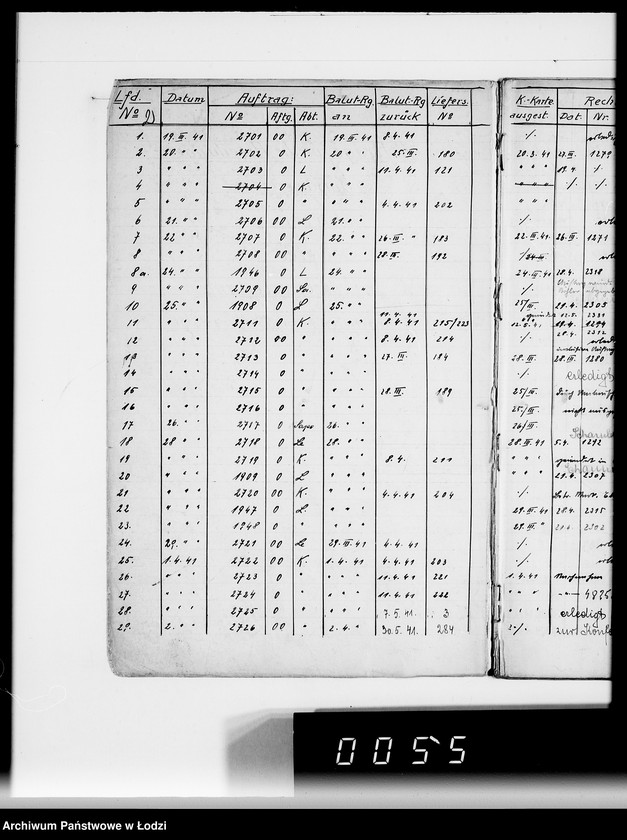 Lfd. Datum Auftrag: Balut-Rg. Balut-Rg Liefers. K.-Karte Rech
No No Aftg. Abt. an zurück No ausgest. Dat. Nr.
1. 19.III.41 2701 00 K. 19.III.41 8.4.41 ./.
2. 20. " " 2702 0 K. 20 " " 25.III. 180 20.3.41 27.III. 1279
3 " " " 2703 0 L " " " 11.4.41 121 " " " ./.
4 " " " 2704 0 K " " " " " " ./. ./.
5 " " " 2705 0 " " " " 4.4.41 202 " " "
6 21. " " 2706 00 L 21. " " ./.
7 22 " " 2707 0 K. 22. " " 26.III. " 183 22.III.41. 26.III. 1271
8 " " " 2708 00 " " " " 28.III. 192
8a. 24. " " 1946 0 L 24. " " 24.III.41 2318
9 " " " 2709 00 " " " ./.
10 25. " " 1908 0 L 25. " " 25/III. 21.4. 2305
11 " " " 2711 0 K. " " " 11.4.41 8.4.41 215/223 1294
12 " " " 2712 00 " " " " 8.4.41 214 ./.
13 " " " 2713 0 " " " " 27.III. 184 28.III. 28.III. 1280
14 " " " 2714 0 " " " " ./. erledigt
15 " " " 2715 0 " " " " 28.III. 189 25/III.
16 " " " 2716 0 " " " " 25/III.
17 26. " " 2717 0 26. " " 26/III
18 28 " " 2718 0 Le 28. " " 28.III.41 5.4. 1292
19 " " " 2719 0 K. " " " 8.4. 211 " " "
20 " " " 1909 0 L " " " " " " 21.4. 2307
21 " " " 2720 00 K. " " " 4.4.41 204 ./.
22 " " " 1947 0 L " " " 29.III.41 28.4. 2315
23. " " " 1948 0 " " " " 29.III. " 2302
24. 29. " " 2721 00 Le 29.III.41 4.4.41 ./.
25. 1.4.41 2722 00 K. 1.4.41 4.4.41 203 ./.
26. " " " 2723 0 " " " " 11.4.41 221 1.4.41
27. " " " 2724 0 " " " " 11.4.41 222 " " " 4825
28. " " " 2725 0 " " " " 7.5.41. 3 " " " erledigt
29. 2. " " 2726 00 " 2.4. " 30.5.41. 284 ./. zur
0055
Archiwum Państwowe w Łodzi